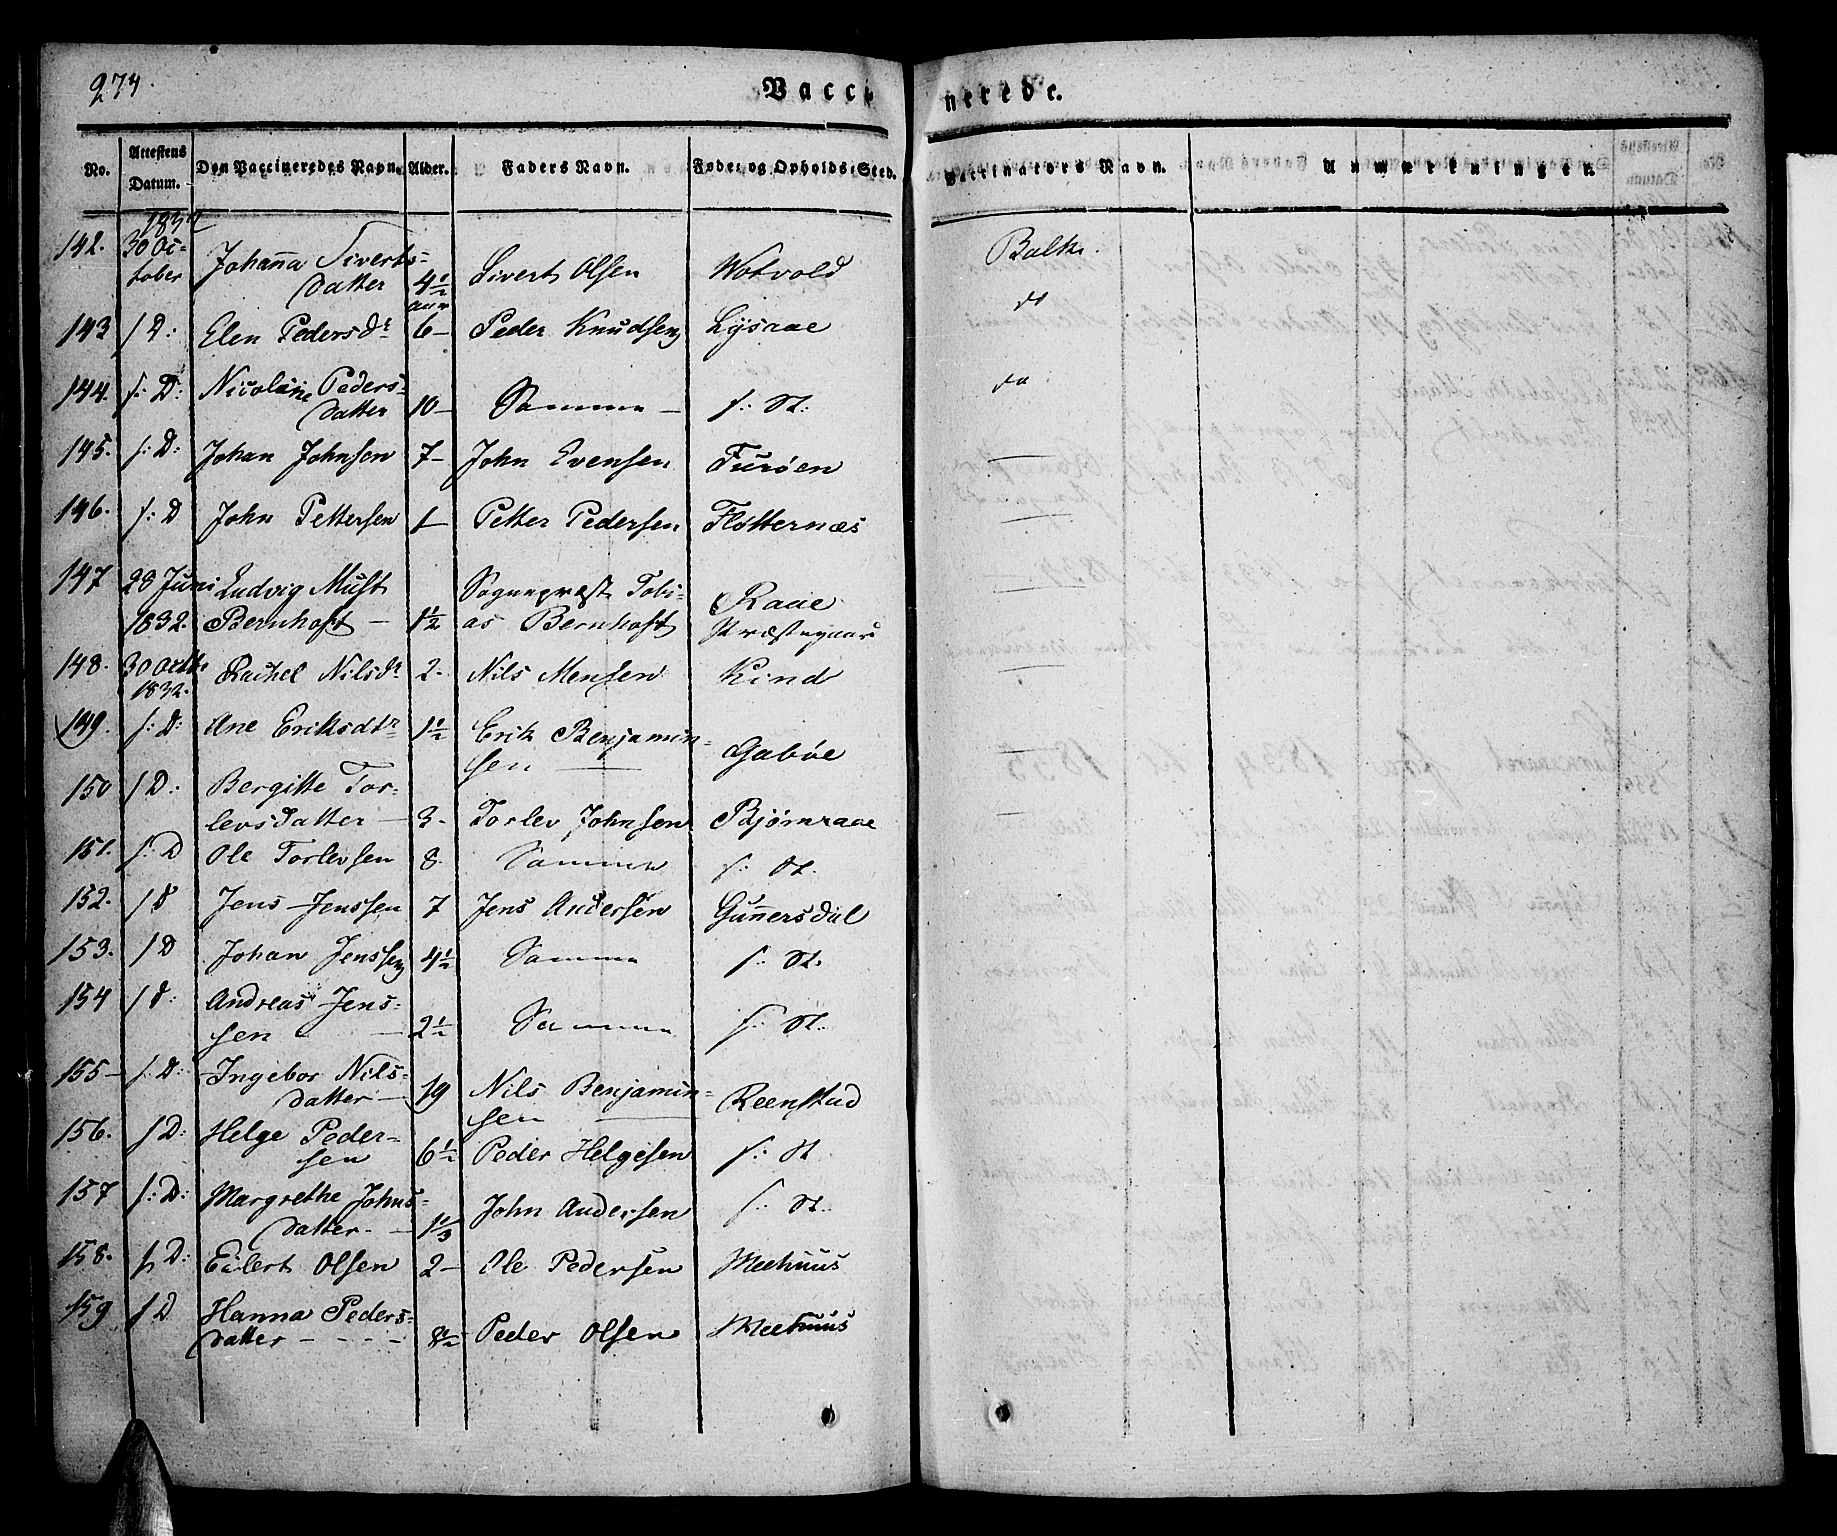 274.
Vaccinerede.
No. Attestens Datum. Den Vaccineredes Navn. Alder. Faders Navn. Føde- og Opholds-Sted. Vaccinators Navn. Anmærkninger.
1832
142. 30 Oc-
tober Johanna Siverts-
datter 4½ aar Sivert Olsen Notvold Balke.
143 s D: Elen Pedersdr 6 – Peder Knudsen Lysaae do
144. s: D: Nicoline Peders-
datter 10 – Samme – s: St: do
145. s: D: Johan Johnsen 7 – John Evensen Furøen —
146. s: D John Pettersen 1 – Petter Pedersen Flotternæs —
147 28 Juni Ludvig Must
1832. Bernhoft – 1½ Sognepræst Tobi-
as Bernhoft Raae
Præstegaar —
148. 30 Octbr
1832. Rachel Nilsdr 2. Nils Mensen Kind —
149. s: D: Ane Eriksdtr 1½ Erik Benjamin-
sen — Gabøe —
150 s D: Bergitte Tor-
levsdatter – 3. Torlev Johnsen Bjørnraae —
151. s: D Ole Torlevsen 8. Samme s: St.
152. s D Jens Jenssen 7 Jens Andersen Gunnersdal
153. s D Johan Jenssen 4½ Samme s: St.
154 s D: Andreas Jens-
sen – 2½ Samme s: St.
155 – s: D: Ingebor Nils-
datter – 19 Nils Benjamin-
sen — Reenstad
156. s D: Helge Peder-
sen 6½ Peder Helgesen s: St
157 s: D: Margrethe Johns-
datter – 1⅓ John Andersen s: St.
158. s D: Eilert Olsen 2 – Ole Pedersen Meehuus
159 s D Hanna Peders-
datter – – – – 8½ Peder Olsen Meehuus